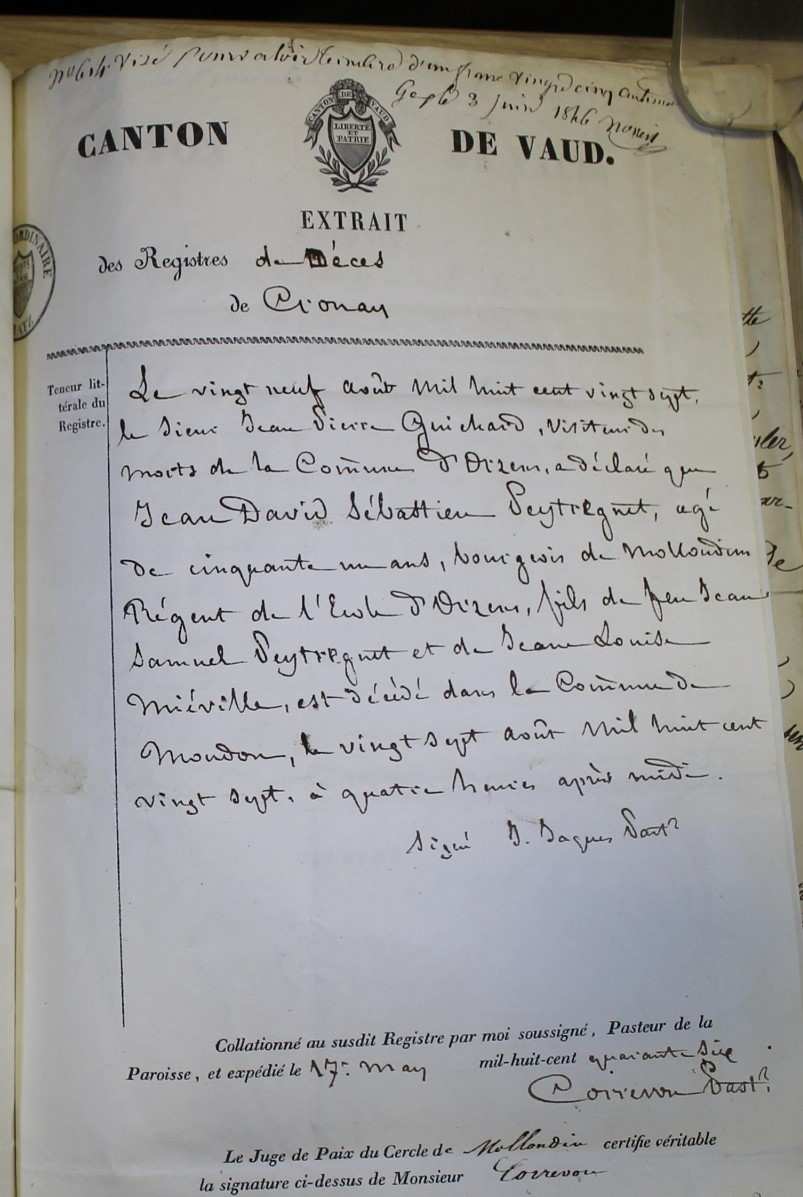 No 614 Visé pour valoir timbre d'un franc vingt cinq centimes
Gex le 3 juin 1846
CANTON DE VAUD
LIBERTÉ ET PATRIE
CANTON DE VAUD.
EXTRAIT
des Registres de Décès
de Cronay
Teneur lit-
térale du
Registre.
Le vingt neuf août mil huit cent vingt sept,
le Sieur Jean Pierre Guichard, visiteur des
morts de la Commune d'Oizens, a déclaré que
Jean David Sébastien Peytregnet, agé
de cinquante un ans, bourgeois de Mollondins
Régent de l'Ecole d'Oizens, fils de feu Jean
Samuel Peytregnet et de Jeanne Louise
Miéville, est décédé dans la Commune de
Moudon, le vingt sept août mil huit cent
vingt sept, à quatre heures après midi.
Signé J. Jaques Past.r
Collationné au susdit Registre par moi soussigné, Pasteur de la
Paroisse, et expédié le 17. may mil-huit-cent quarante six.
Correvon Past.r
Le Juge de Paix du Cercle de Mollondin certifie véritable
la signature ci-dessus de Monsieur Correvon